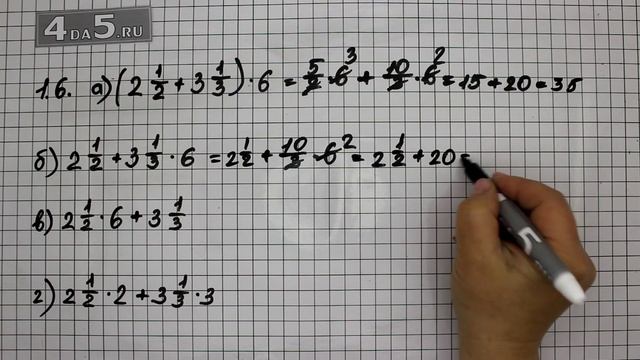 4DA5.RU
1.6. а) (2 1/2 + 3 1/3) · 6 = 5/2 · 6 3 + 10/3 · 6 2 = 15 + 20 = 35
б) 2 1/2 + 3 1/3 · 6 = 2 1/2 + 10/3 · 6 2 = 2 1/2 + 20 =
в) 2 1/2 · 6 + 3 1/3
г) 2 1/2 · 2 + 3 1/3 · 3